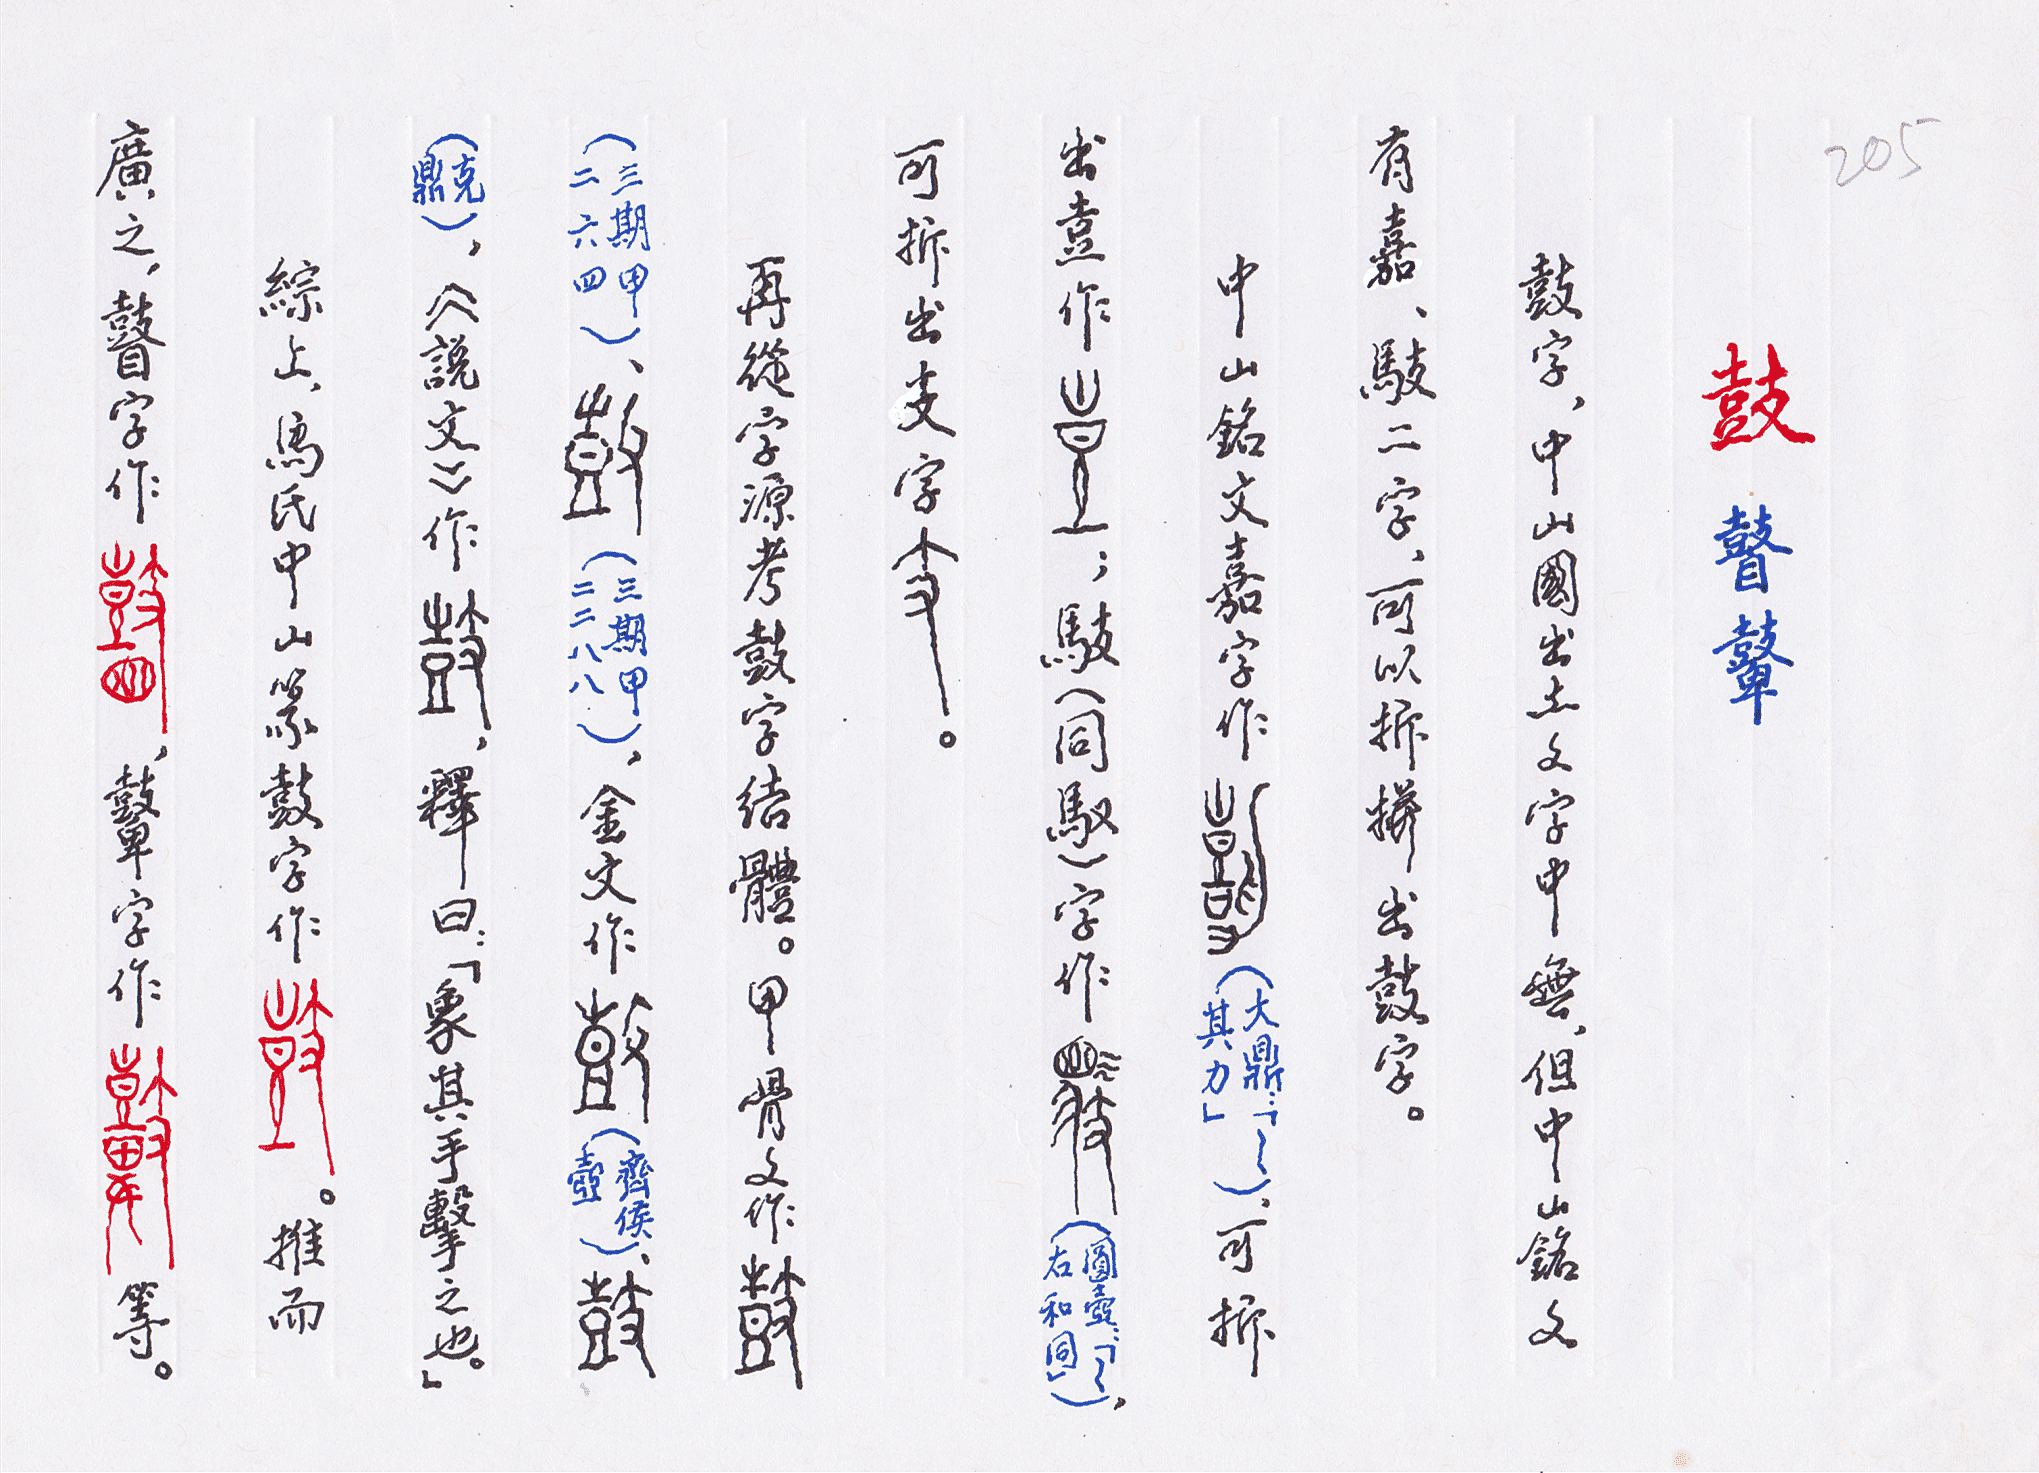 205
鼓 瞽 鼙
鼓字，中山國出土文字中無，但中山銘文
有嘉、鼓二字，可以拆拼出鼓字。
中山銘文嘉字作（大鼎：「～其力」），可拆
出壴作；（同馭）字作（圓壺：「～右和同」），
可拆出支字。
再從字源考鼓字結體。甲骨文作
（三期甲二六四）、（三期甲二二八八），金文作（齊侯壺）、
（克鼎），《説文》作，釋曰：「象其手擊之也。」
綜上，為氏中山篆鼓字作。推而
廣之，瞽字作，鼙字作等。